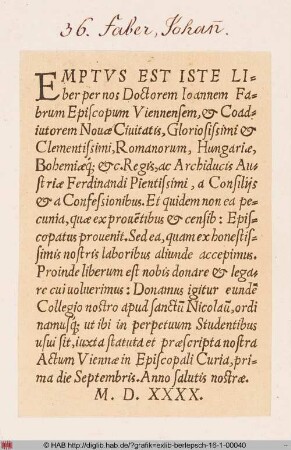 36. Faber, Johañ.
EMPTVS EST ISTE LI-
ber per nos Doctorem Ioannem Fa-
brum Episcopum Viennensem, & Coad-
iutorem Nouæ Ciuitatis, Gloriosissimi &
Clementissimi, Romanorum, Hungariæ,
Bohemiæq; &c. Regis, ac Archiducis Au-
striæ Ferdinandi Pientissimi, a Consilijs
& a Confessionibus. Et quidem non ea pe-
cunia, quæ ex prouētibus & censib: Epis-
copatus prouenit. Sed ea, quam ex honestis-
simis nostris laboribus aliunde accepimus.
Proinde liberum est nobis donare & lega-
re cui uoluerimus: Donamus igitur eundē
Collegio nostro apud sanctū Nicolaū, ordi
namusq; ut ibi in perpetuum Studentibus
usui sit, iuxta statuta et præscripta nostra
Actum Viennæ in Episcopali Curia, pri-
ma die Septembris. Anno salutis nostræ.
M. D. XXXX.
© HAB http://diglib.hab.de/?grafik=exlib-berlepsch-16-1-00040